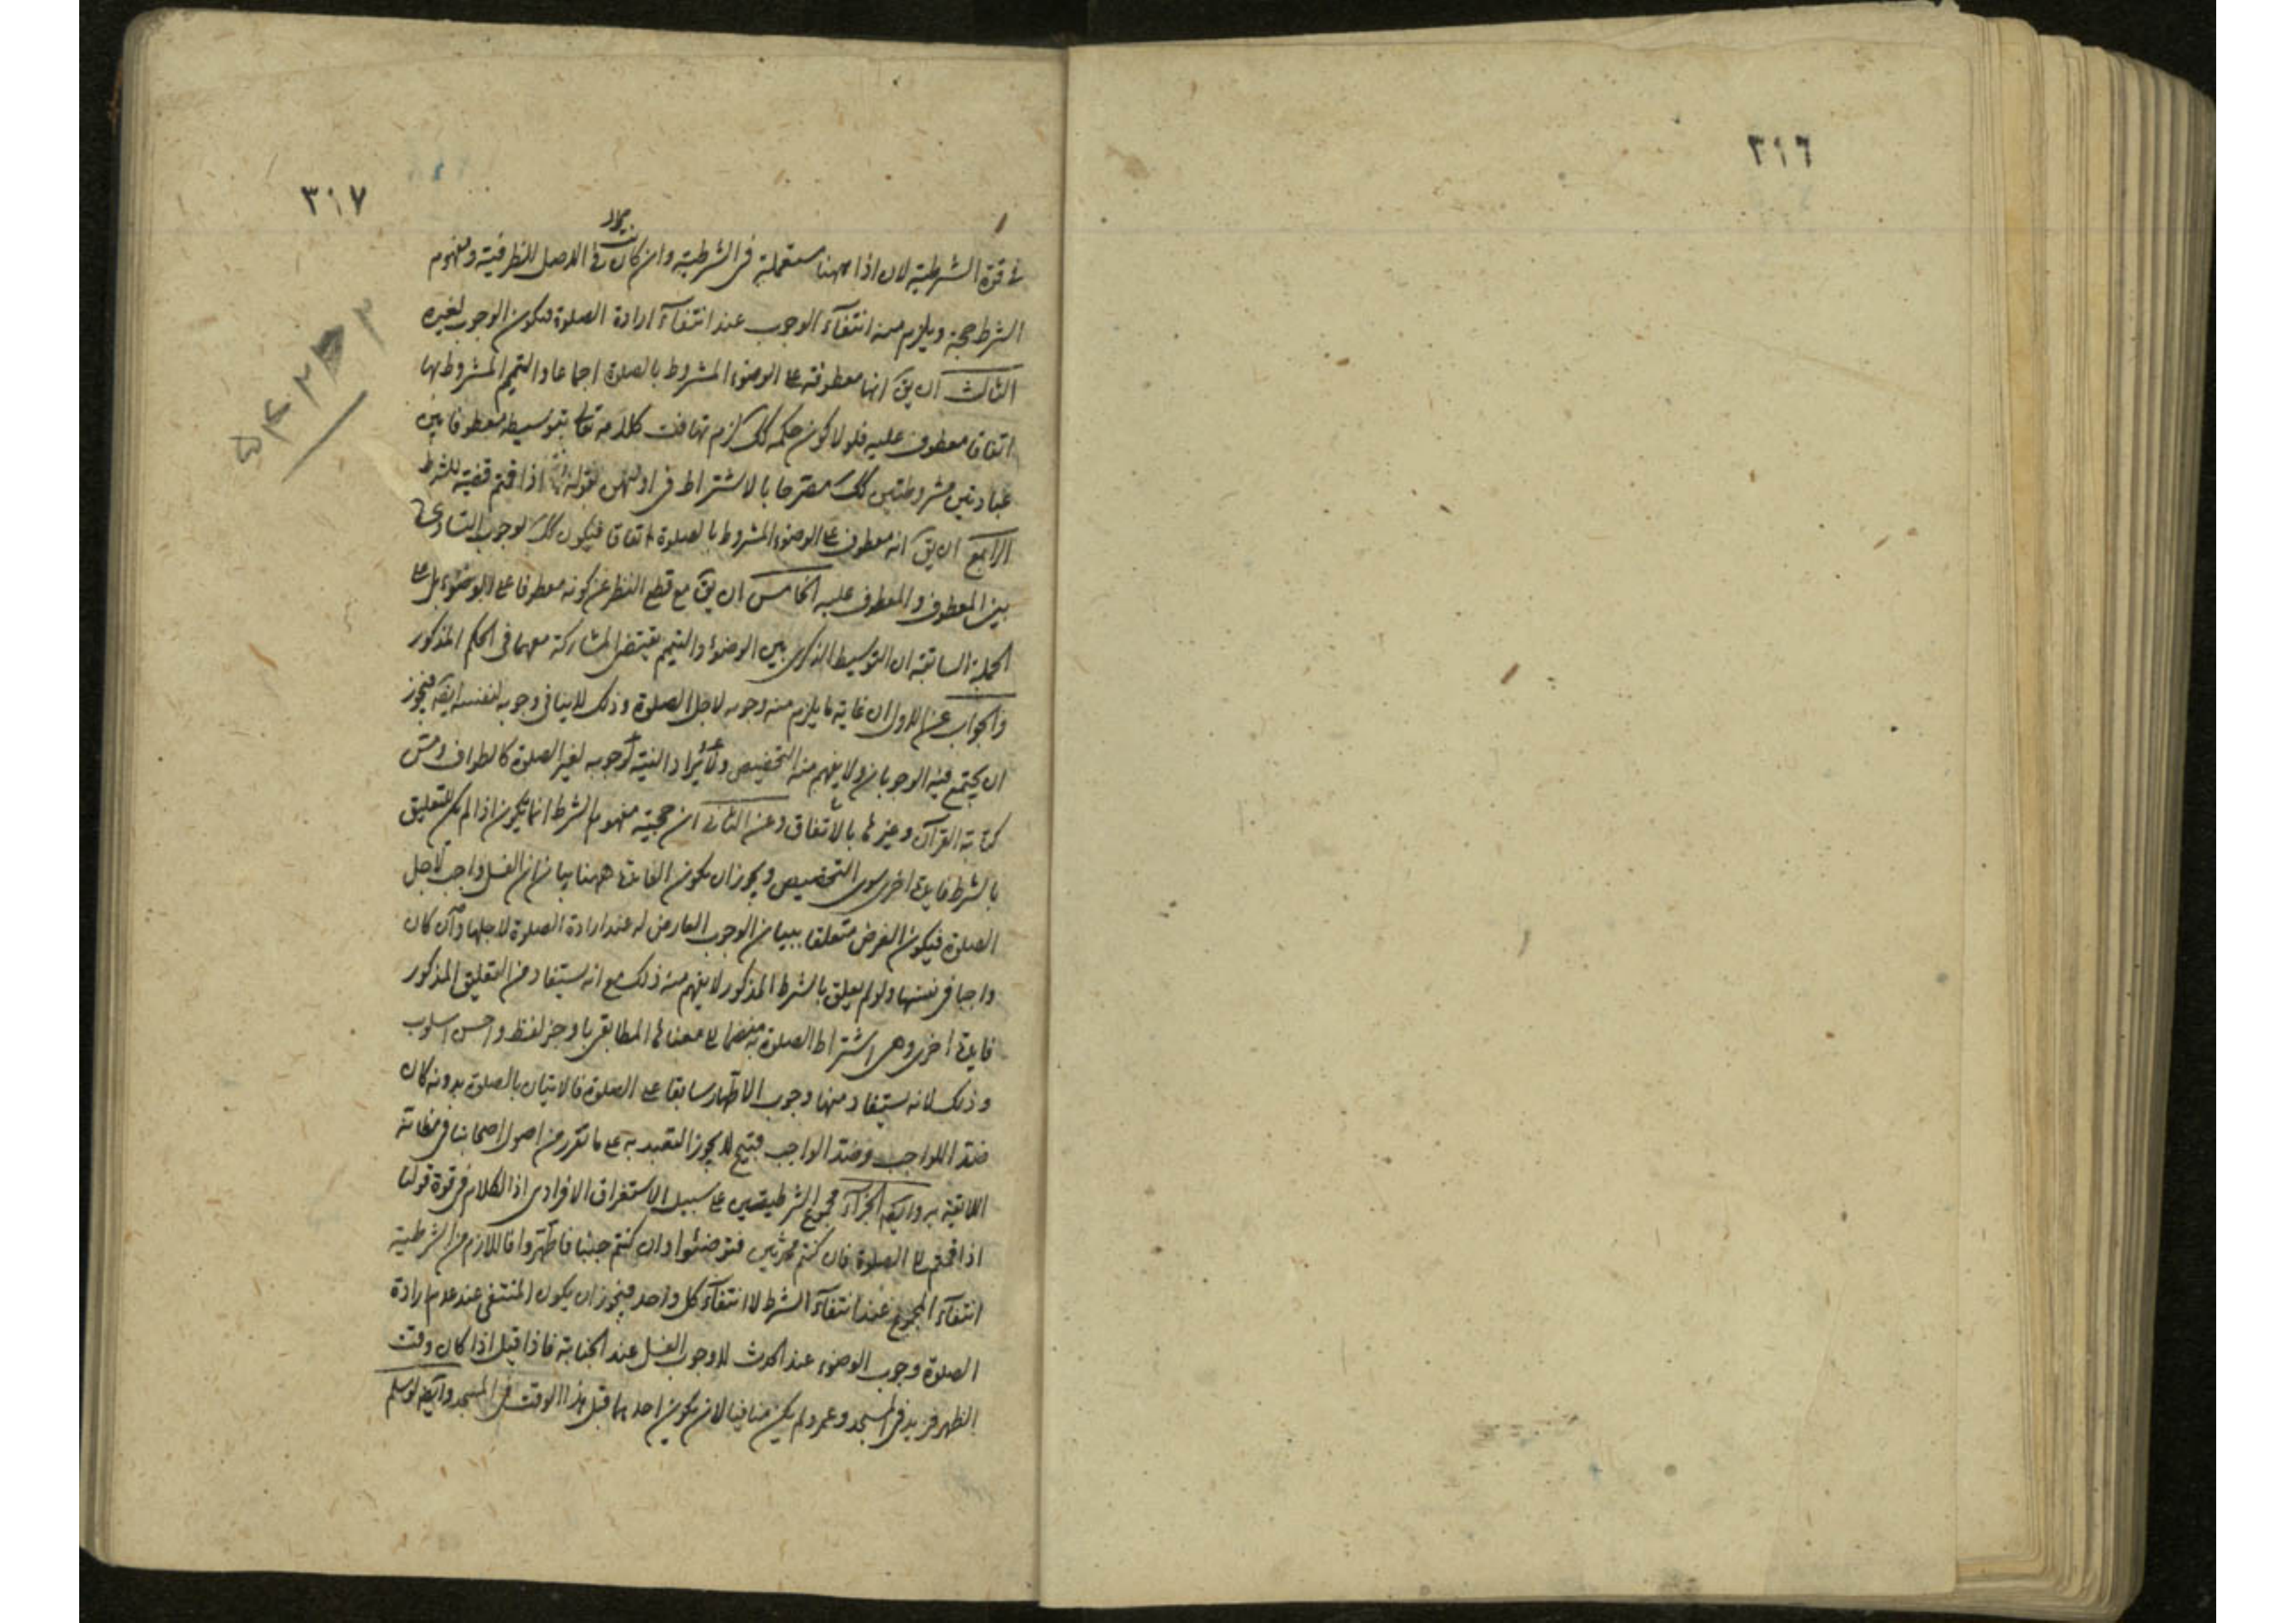 ٣١٦
٣١٧
في قوة الشرطية لان اذا ههنا مستعملة في الشرطية وان كانت في الاصل للظرفية ومفهوم
الشرط حجة ويلزم منه انتفآء الوجوب عند انتفآء ارادة الصلوة فيكون الوجوب لغيره
الثالث ان يق انها معطوفة على الوضوء المشروط بالصلوة اجماعا والتيمم المشروط بها
اتفاقا معطوف عليه فلو لا كون حكمه كك لزم تهافت كلامه تعالى بتوسيطه معطوفا بين
عبادتين مشروطتين كك مصرحا بالاشتراط في اوليهن بقوله اذا قمتم قضية للشرط
الرابع ان يق انه معطوف على الوضوء المشروط بالصلوة اتفاقا فيكون كك لوجوب التساوي
بين المعطوف والمعطوف عليه الخامس ان يق مع قطع النظر عن كونه معطوفا على الوضوء بل على
الجملة السابقة ان التوسيط الذكرى بين الوضوء والتيمم يقتضي المشاركة معهما في الحكم المذكور
والجواب عن الاول ان غاية ما يلزم منه وجوبه لاجل الصلوة وذلك لاينافي وجوبه لنفسه ايضا فيجوز
ان يجتمع فيه الوجوبان ولا يفهم منه التخصيص والنية لوجوبه لغير الصلوة كالطواف ومس
كتابة القرآن وغيرها بالاتفاق وعن الثاني ان حجية مفهوم الشرط انما يكون اذا لم يكن للتعليق
بالشرط فايدة اخرى سوى التخصيص ويجوز ان يكون الفايدة ههنا بيان ان الغسل واجب لاجل
الصلوة فيكون الغرض متعلقا ببيان الوجوب العارض له عند ارادة الصلوة لاجلها وان كان
واجبا في نفسها ولو لم يعلق بالشرط المذكور لا يفهم منه ذلك مع انه يستفاد من التعليق المذكور
فايدة اخرى وهي اشتراط الصلوة به منضما الى معناها المطابقي باوجز لفظ واحسن اسلوب
وذلك لانه يستفاد منها وجوب الاطهار سابقا على الصلوة فالاتيان بالصلوة بدونه كان
ضد الواجب وضد الواجب قبيح لا يجوز التعبد به على ما تقرر من اصول اصحابنا في مظانه
اللايقة به وايضا الجزآء مجموع الشرطيتين على سبيل الاستغراق الافرادى اذ الكلام في قوة قولنا
اذا قمتم الى الصلوة فان كنتم محدثين فتوضئوا وان كنتم جنبا فاطهروا فاللازم من الشرطية
انتفآء المجموع عند انتفآء الشرط لا انتفآء كل واحد فيجوز ان يكون المنتفي عند عدم ارادة
الصلوة وجوب الوضوء عند الحدث لا وجوب الغسل عند الجنابة فاذا قيل اذا كان وقت
الظهر فزيد في المسجد وعمرو لم يكن منافيا لان يكون احدهما قبل هذا الوقت في المسجد وايضا لو سلم